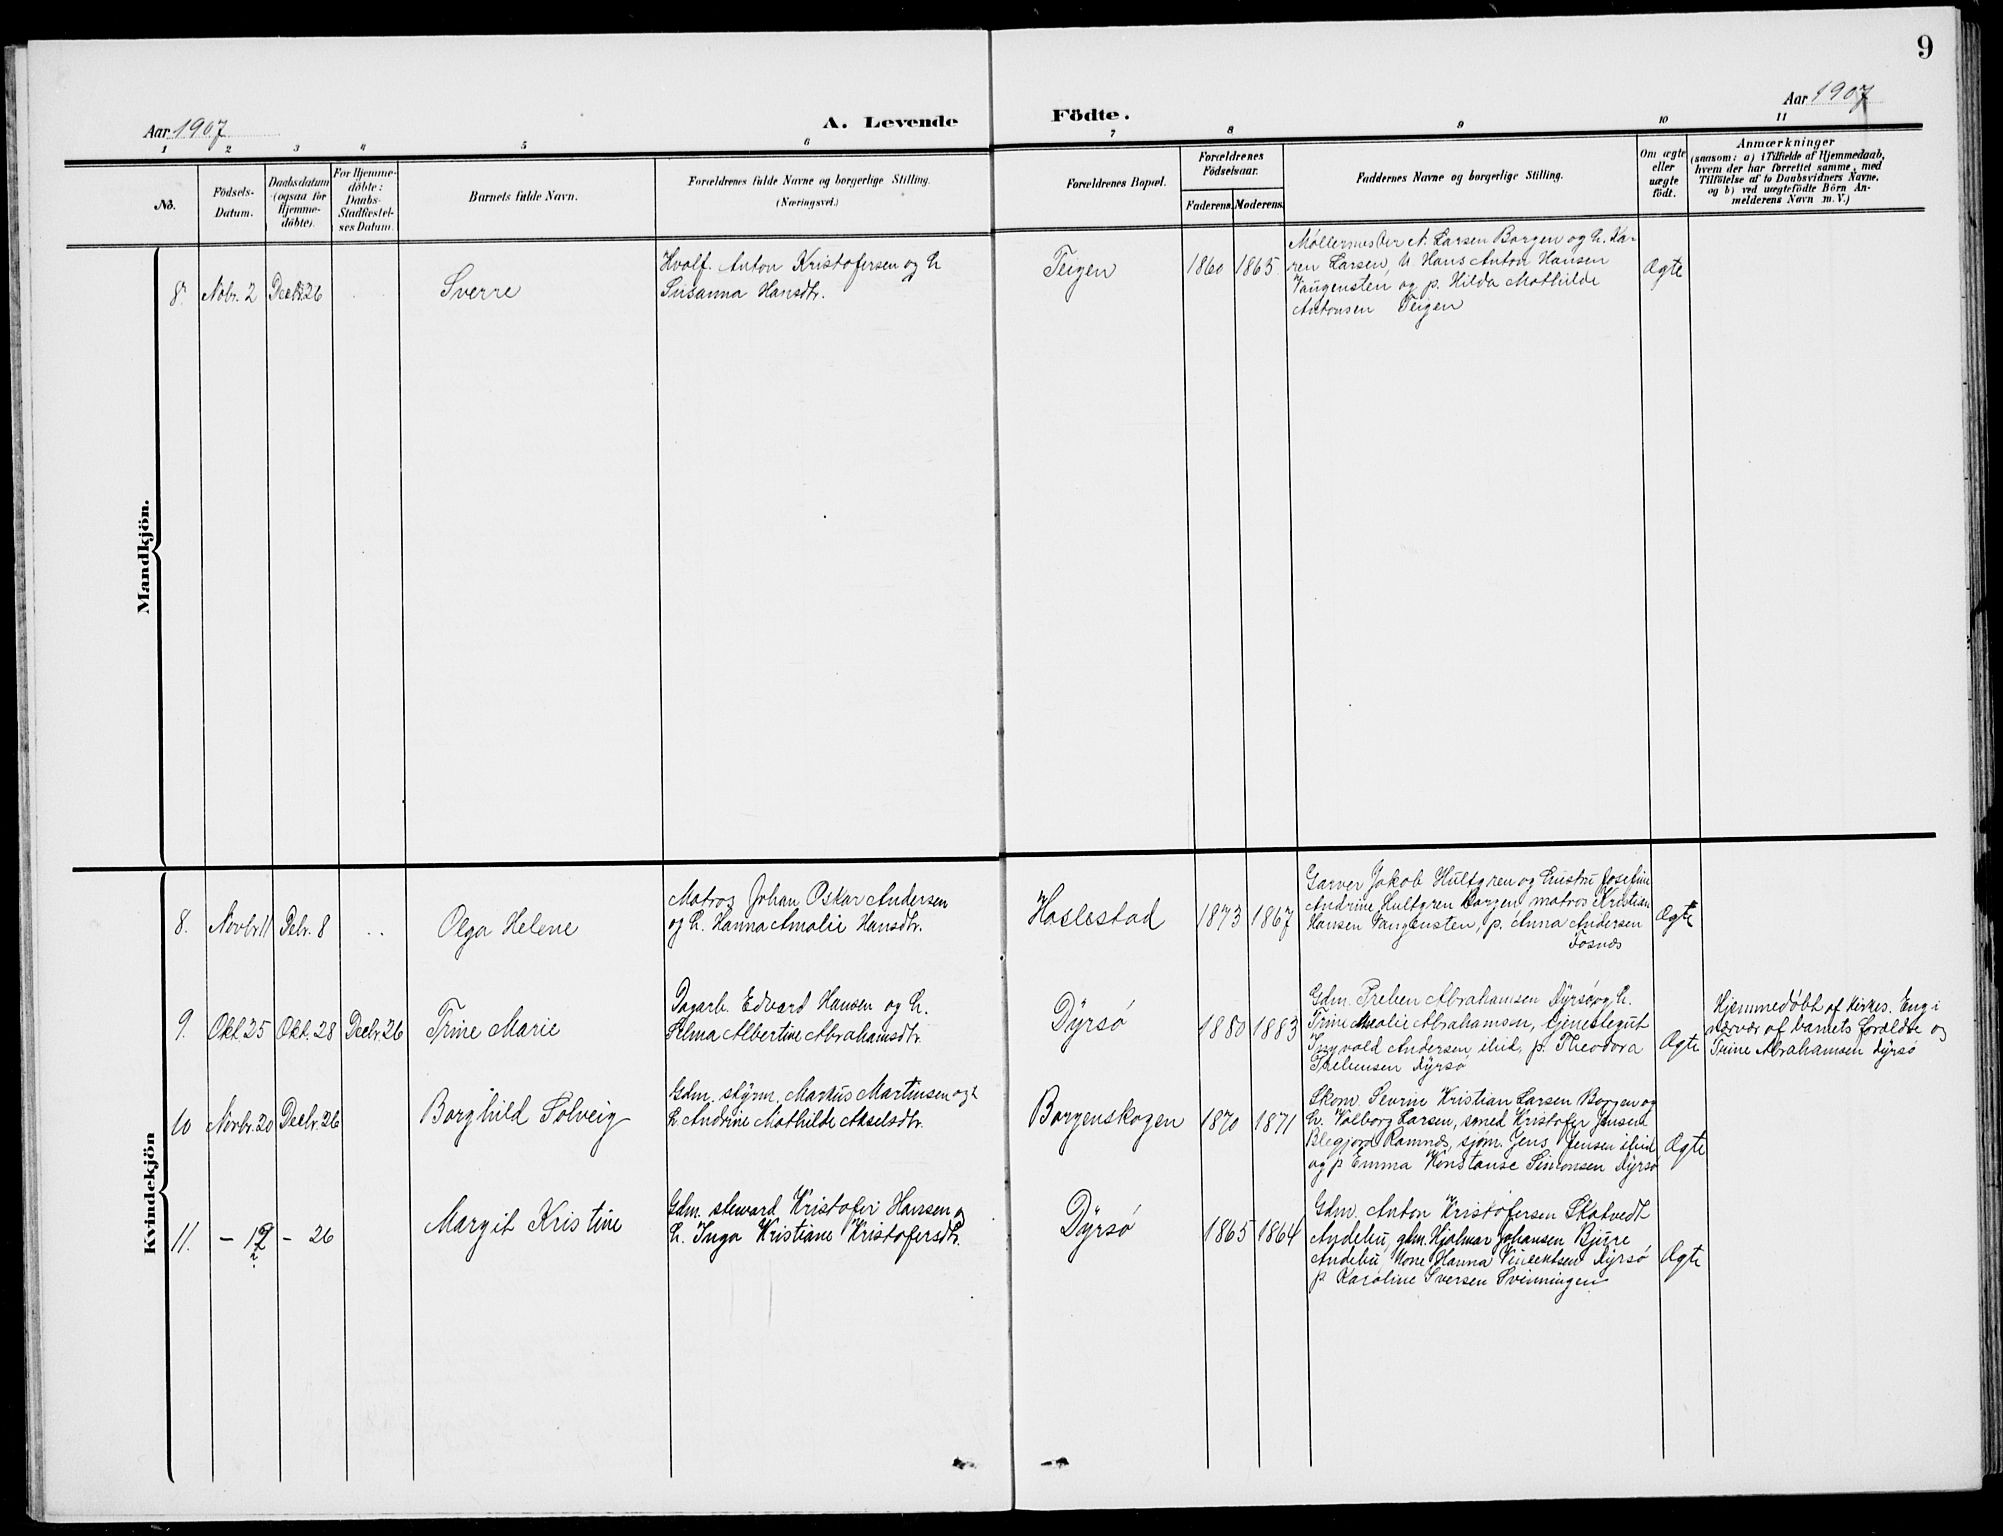 9
Aar 1907
A. Levende Födte.
Aar 1907
1 2 3 4 5 6 7 8 9 10 11
No.
Födsels-
Datum.
Daabsdatum
(ogsaa for
Hjemme-
döbte).
For Hjemme-
döbte:
Daabs-
Stadfæstel-
ses Datum.
Barnets fulde Navn.
Forældrenes fulde Navne og borgerlige Stilling.
(Næringsvei.)
Forældrenes Bopæl.
Forældrenes
Födselsaar.
Faderens. Moderens.
Faddernes Navne og borgerlige Stilling.
Om ægte
eller
uægte
födt.
Anmærkninger
(saasom: a) i Tilfælde af Hjemmedaab,
hvem der har forrettet samme, med
Tilföielse af to Daabsvidners Navne,
og b) ved uægtefödte Börn An-
melderens Navn m. V.)
Mandkjön.
8. Nobr. 2 Decbr 26
Sverre
Hvalf. Anton Kristofersen og h
Susanna Hansdtr.
Teigen
1860 1865
Møllermester A. Larsen Borgen og h. Ka-
ren Larsen, U. Hans Anton Hansen
Vaugensten og p. Hilda Mathilde
Antonsen Teigen
Ægte
Kvindekjön
8. Novbr 11 Debr. 8
Olga Helene
Matros Johan Oskar Andersen
og h. Hanna Amalie Hansdtr.
Haslestad
1873 1867
Garver Jakob Hultgren og hustru Josefine
Andrine Hultgren Borgen matros Kristian
Hansen Vangensten, p. Anna Andersen
Fosnæs
Ægte
9. Okt. 25 Okt. 28 Decbr. 26
Trine Marie
Dagarb. Edvard Hansen og h.
Selma Albertine Abrahamsdtr.
Dÿrsø
1880 1883
Gdm. Preben Abrahamsen Dÿrsø og h.
Trine Amalie Abrahamsen, tjenestegut
Andersen, ibid, p. Theodora
Dÿrsø
Ægte
Hjemmedøbt af Kirkes. Eng i
nærvær af barnets forældre og
Trine Abrahamsen Dÿrsø
10 Novbr. 20 Decbr. 26
Borghild Solveig
Gdm. styrm. Markus Martinsen og
h Andrine Mathilde Akselsdtr.
Borgenskogen
1870 1871
Skom. Severin Kristian Larsen Borgen og
h. Valborg Larsen, smed Kristofer Jensen
Ramnæs, sjøm. Jens Jensen ibid
og p Emma Konstanse Simonsen Dÿrsø
Ægte
11. – 19 – 26
Margit Kristine
Gdm. steward Kristofer Hansen og
h. Inga Kristiane Kristofersdtr.
Dÿrsø
1865 1864
Gdm. Anton Kristofersen Skatvedt
Andebu, gdm. Hjalmar Johansen Bjure
Andebu, Kone Hanna Vincentsen Dÿrsø
p Karoline Iversen Svinningen
Ægte